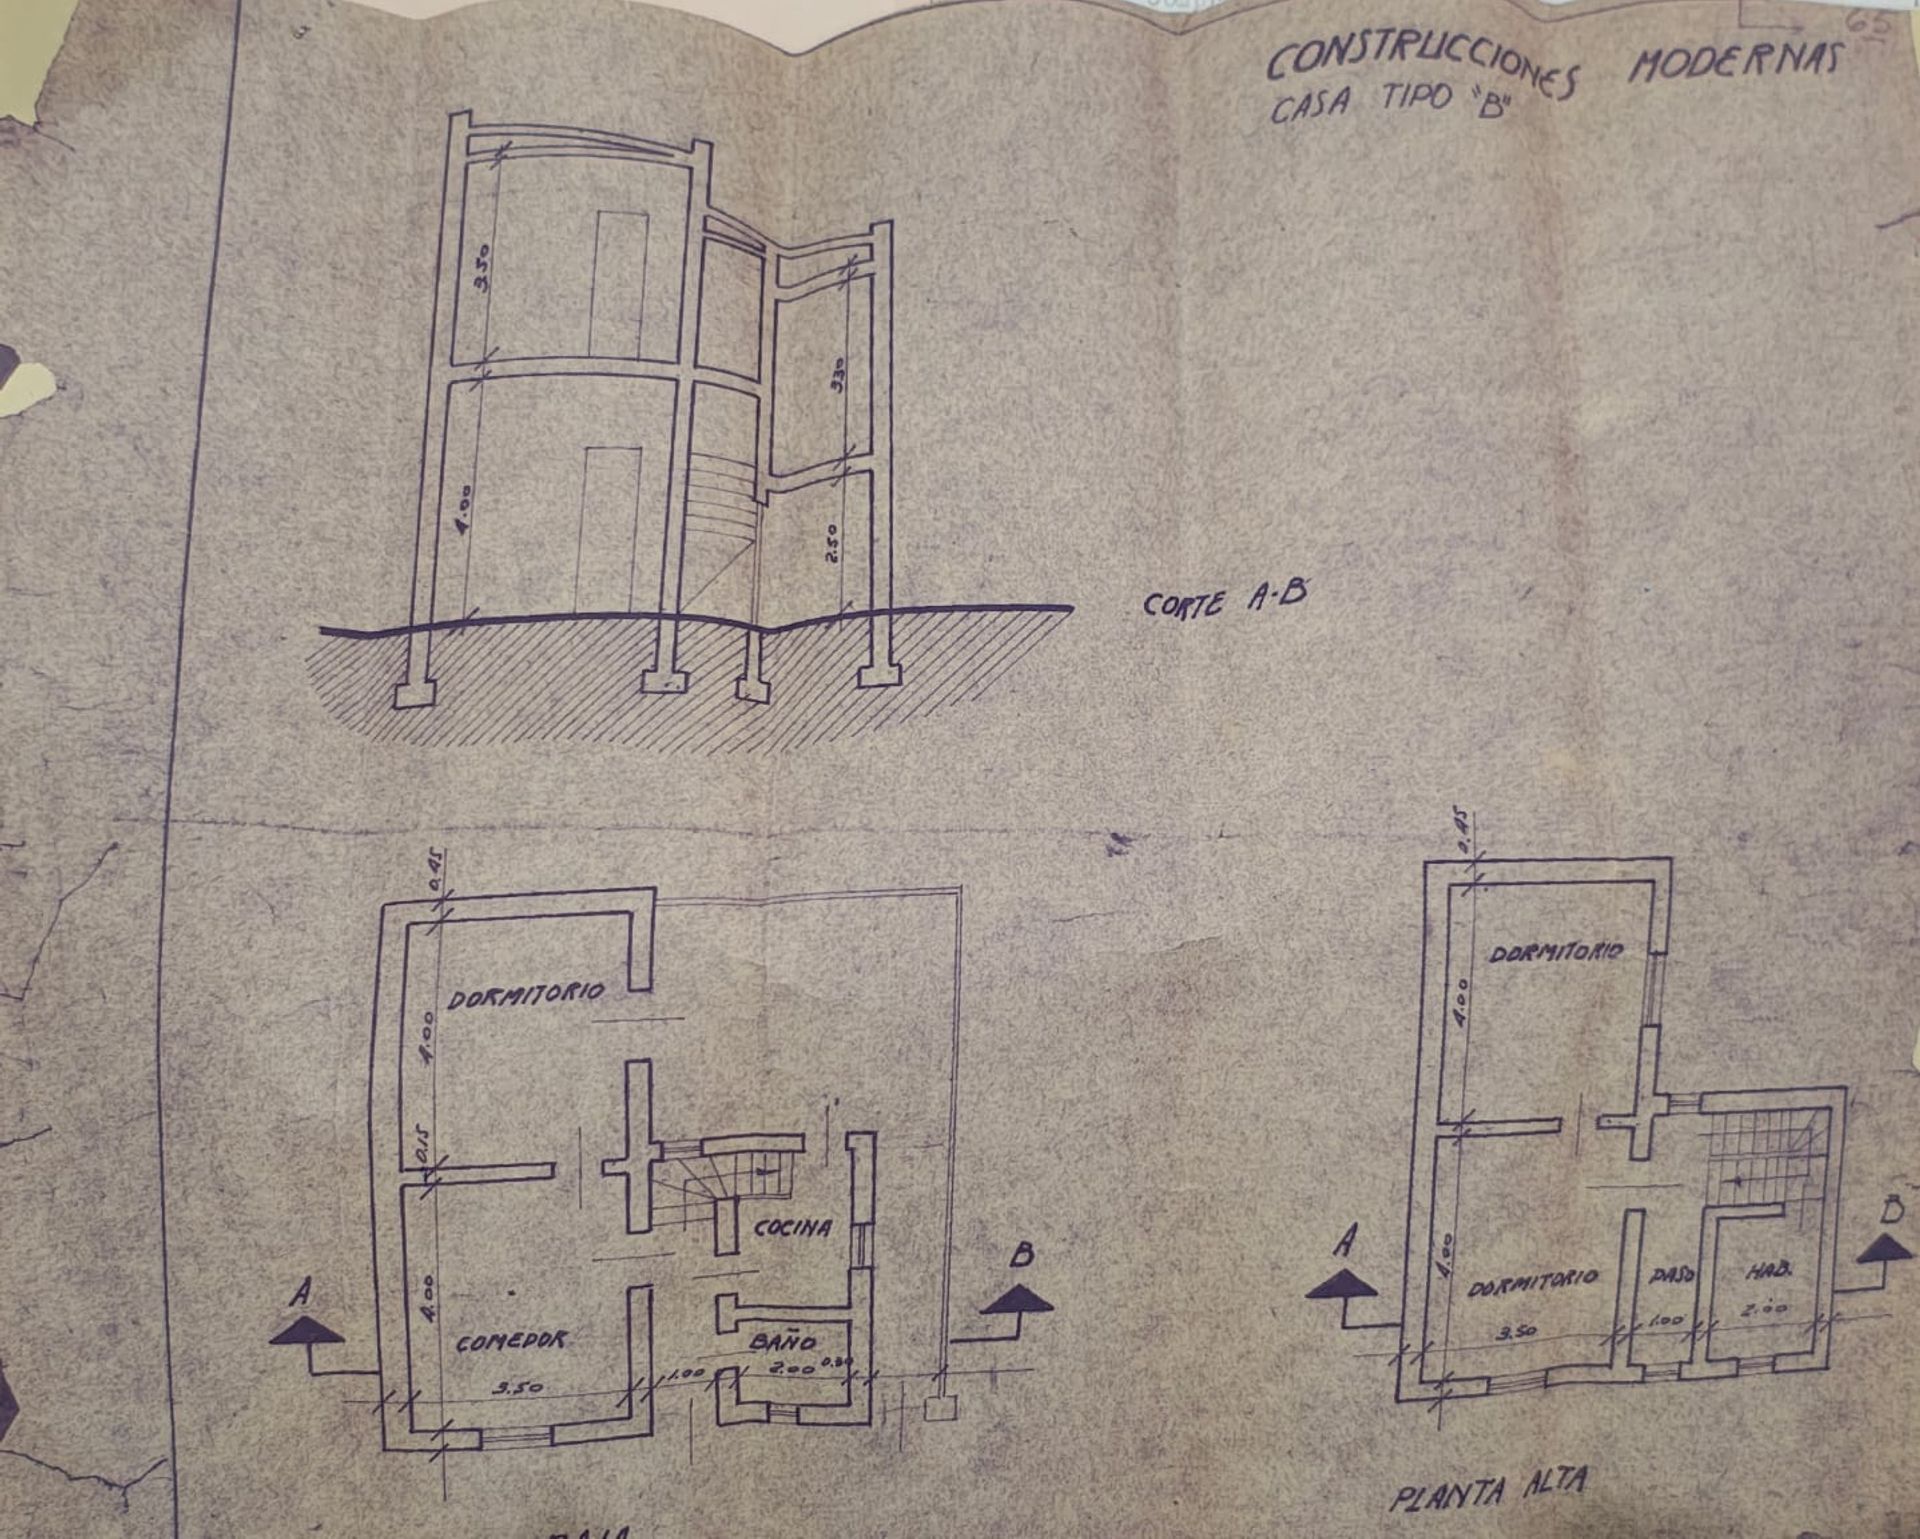 65
CONSTRUCCIONES MODERNAS
CASA TIPO "B"
3.50
3.30
4.00
2.50
CORTE A-B
0.45
DORMITORIO
4.00
0.15
COCINA
A
B
4.00
COMEDOR
BAÑO
3.50
1.00
2.00
0.30
0.45
DORMITORIO
4.00
A
B
4.00
DORMITORIO
PASO
HAB.
3.50
1.00
2.00
PLANTA ALTA